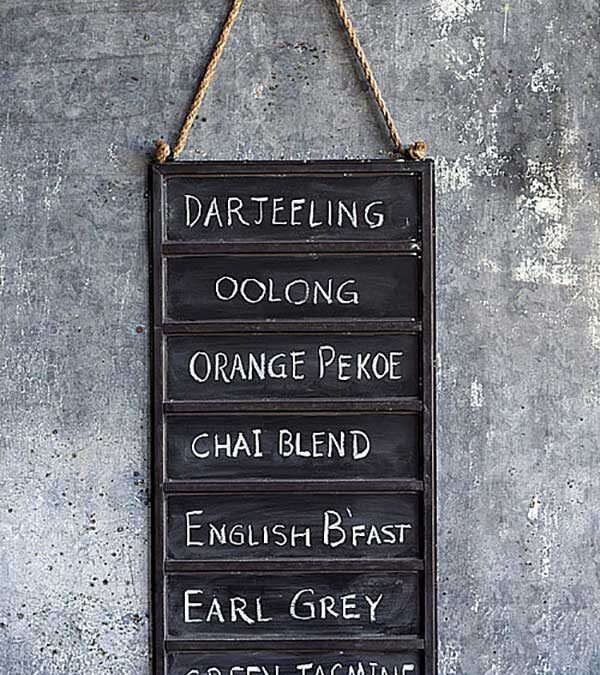 DARJEELING
OOLONG
ORANGE PEKOE
CHAI BLEND
ENGLISH B'FAST
EARL GREY
GREEN JASMINE